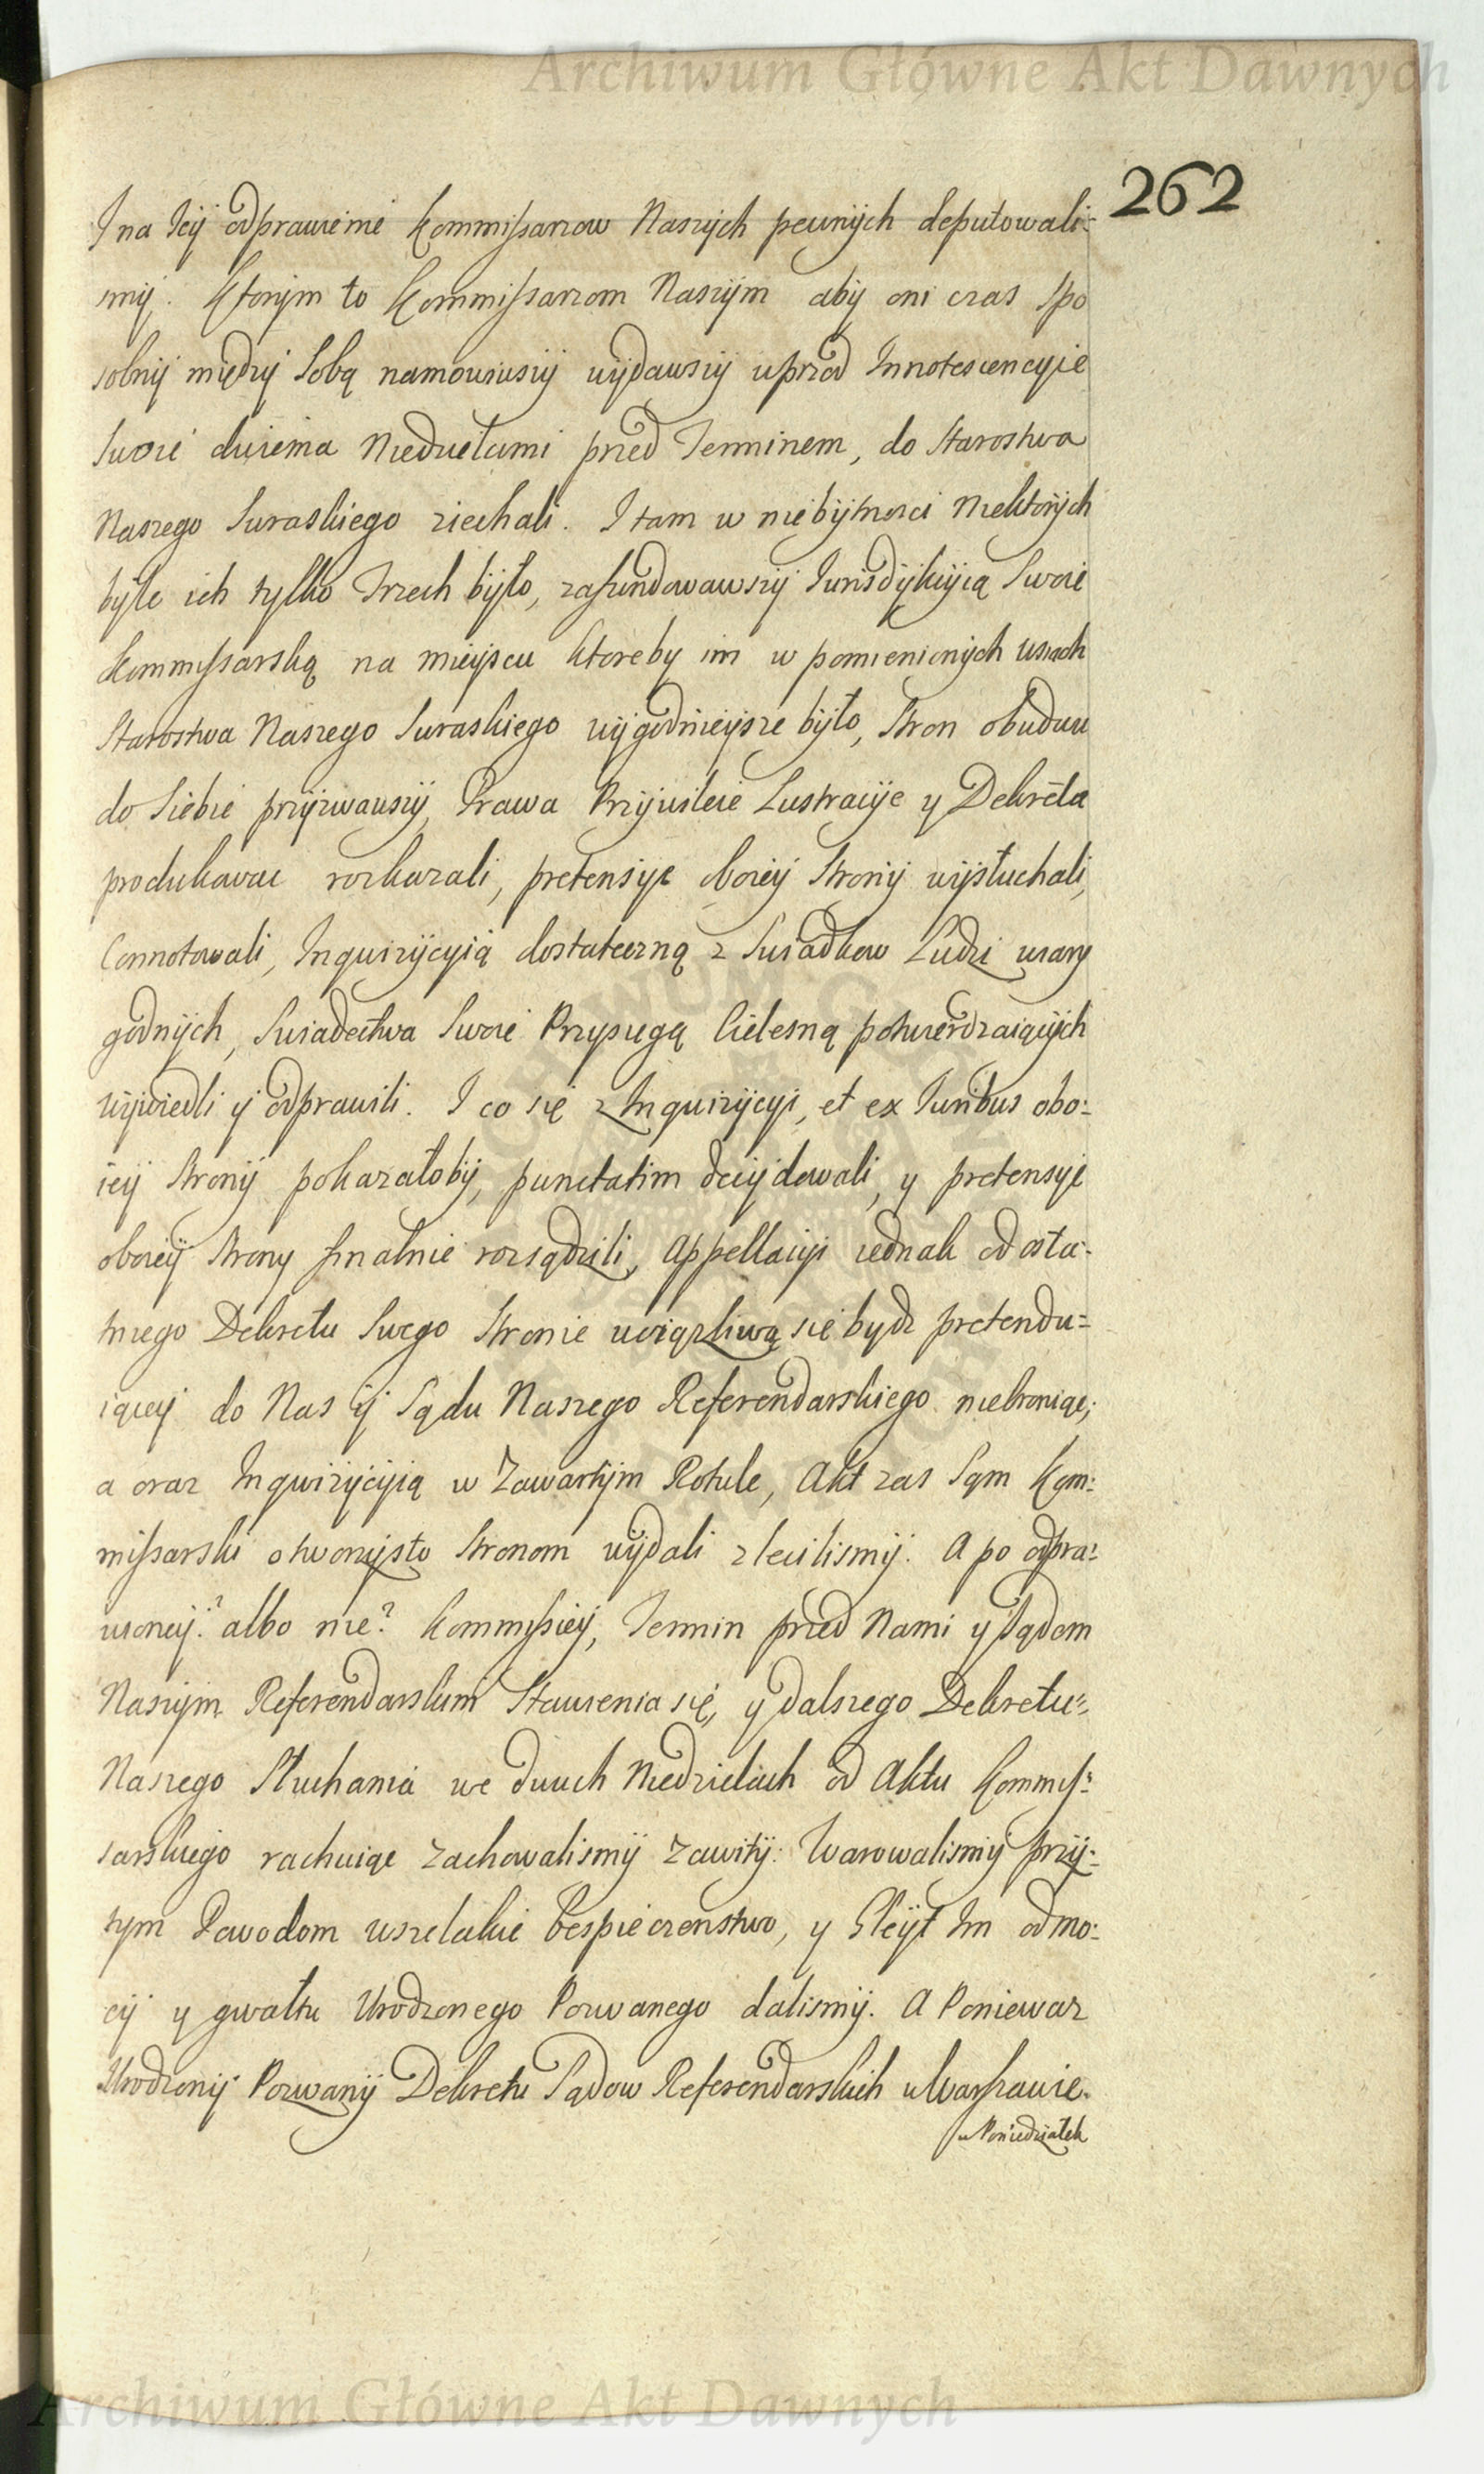 Archiwum Główne Akt Dawnych
262
I na Iey odprawienie Kommissarzow Naszych pewnych deputowali-
smy. Ktorym to Kommissarzom Naszym aby oni czas spo
sobny między Sobą namowiwszy wydawszy wprzod Innotescencyie
Swoie dwiema Niedzielami przed Terminem, do Starostwa
Naszego Suraskiego ziechali. I tam w niebytnosci Niektorych
byle ich tylko Trzech było, zafundowawszy Iurisdykcyią Swoie
Kommissarską na mieyscu ktoreby im w pomienionych wsiach
Starostwa Naszego Suraskiego wygodnieysze było, Stron obudwu
do Siebie przyzwawszy, Prawa Przywileie Lustracye y Dekreta
produkowac roskazali, pretensye oboiey Strony wysłuchali,
Connotowali, Inquizycyią dostateczną z Swiadkow Ludzi wiary
godnych, Swiadectwa Swoie Przysięgą Cielesną potwierdzaiących
wywiedli y odprawili. I co się z Inquizycyi, et ex Iuribus obo-
iey Strony pokazałoby, punctatim decydowali, y pretensye
oboiey Strony finalnie rozsądzili, Appellacyi iednak od osta-
tniego Dekretu Swego Stronie uciążliwą się bydz pretendu=
iącey do Nas y Sądu Naszego Referendarskiego niebroniąc;
a oraz Inqwizycyią w Zawartym Rotule, Akt zas Sąm Kom-
missarski otworzysto Stronom wydali zlecilismy. A po odpra-
wioney? albo nie? Kommissiey, Termin przed Nami y Sądem
Naszym Referendarskim Stawienia się, y dalszego Dekretu=
Naszego Słuchania we dwuch Niedzielach od Aktu Kommis-
sarskiego rachuiąc Zachowalismy Zawity. Warowalismy przy-
tym Powodom wszelakie bespieczenstwo, y Gleyt Im od mo-
cy y gwałtu Urodzonego Pozwanego dalismy. A Poniewaz
Urodzony Pozwany Dekretu Sądow Referendarskich w Warszawie
w Poniedziałek
Archiwum Główne Akt Dawnych